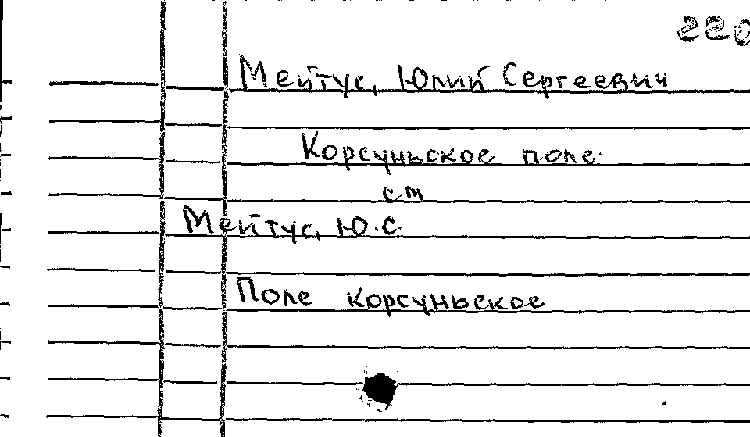 220
Мейтус, Юлий Сергеевич
Корсуньское поле.
см
Мейтус, Ю.С.
Поле корсуньское